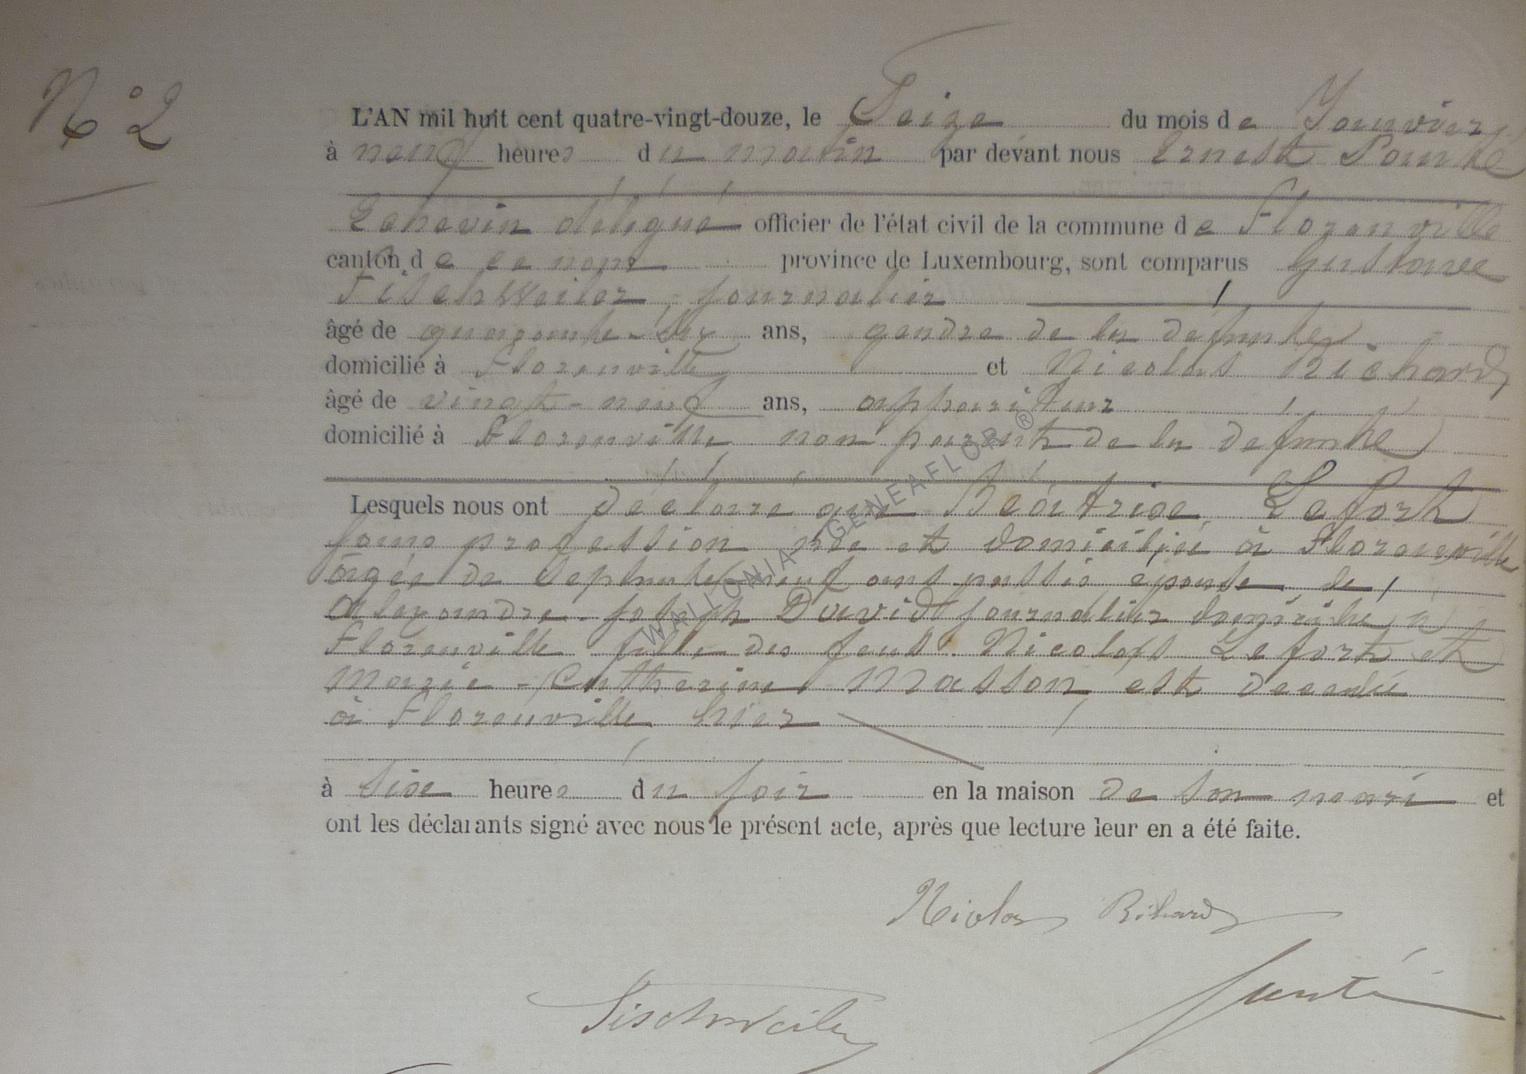 N° 2
L'AN mil huit cent quatre-vingt-douze, le Seize du mois de Janvier
à neuf heures du matin par devant nous Ernest
Echevin délégué officier de l'état civil de la commune de Florenville
canton de ce nom province de Luxembourg, sont comparus Gustave
Fischweiler, journalier
âgé de quarante-six ans, gendre de la défunte
domicilié à Florenville et Nicolas Richard
âgé de vingt-neuf ans, appariteur
domicilié à Florenville non parent de la défunte
Lesquels nous ont déclaré que Béatrice Lefort
sans profession née et domiciliée à Florenville
âgée de Septante neuf ans passés épouse de
Alexandre Joseph David journalier domicilié à
Florenville fille des feus Nicolas Lefort et
Marie-Catherine Masson est decedée
à Florenville hier
à Six heures du soir en la maison de son mari et
ont les déclarants signé avec nous le présent acte, après que lecture leur en a été faite.
Nicolas Richard
Fischweiler
WALLONIA GENEAFLOR ®